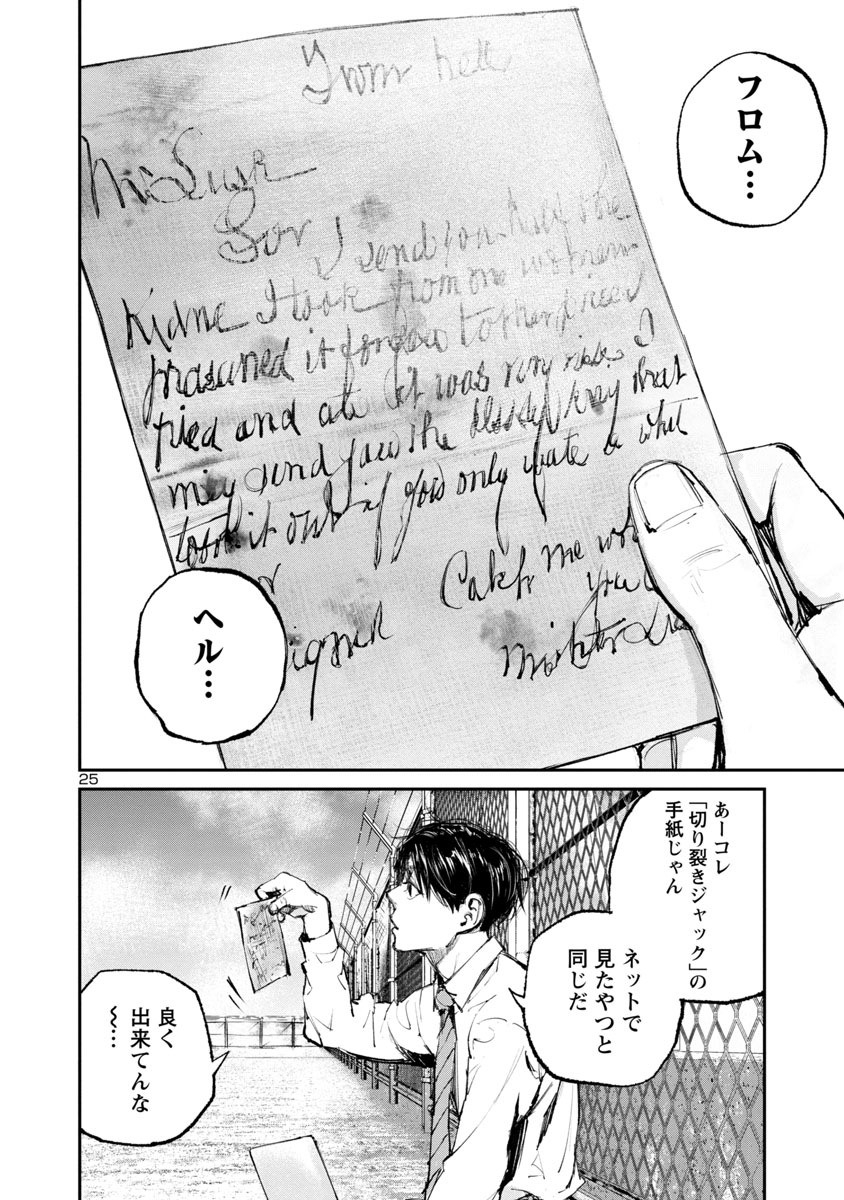 フロム…
From hell
Mr Lusk
Sor
I send you half the
Kidne I took from one women
prasarved it for you tother piece I
fried and ate it was very nise I
may send you the bloody knif that
took it out if you only wate a whil
signed
Catch me
you
Mishter
ヘル…
25
あーコレ
「切り裂きジャック」の
手紙じゃん
ネットで
見たやつと
同じだ
良く
出来てんな
〜…